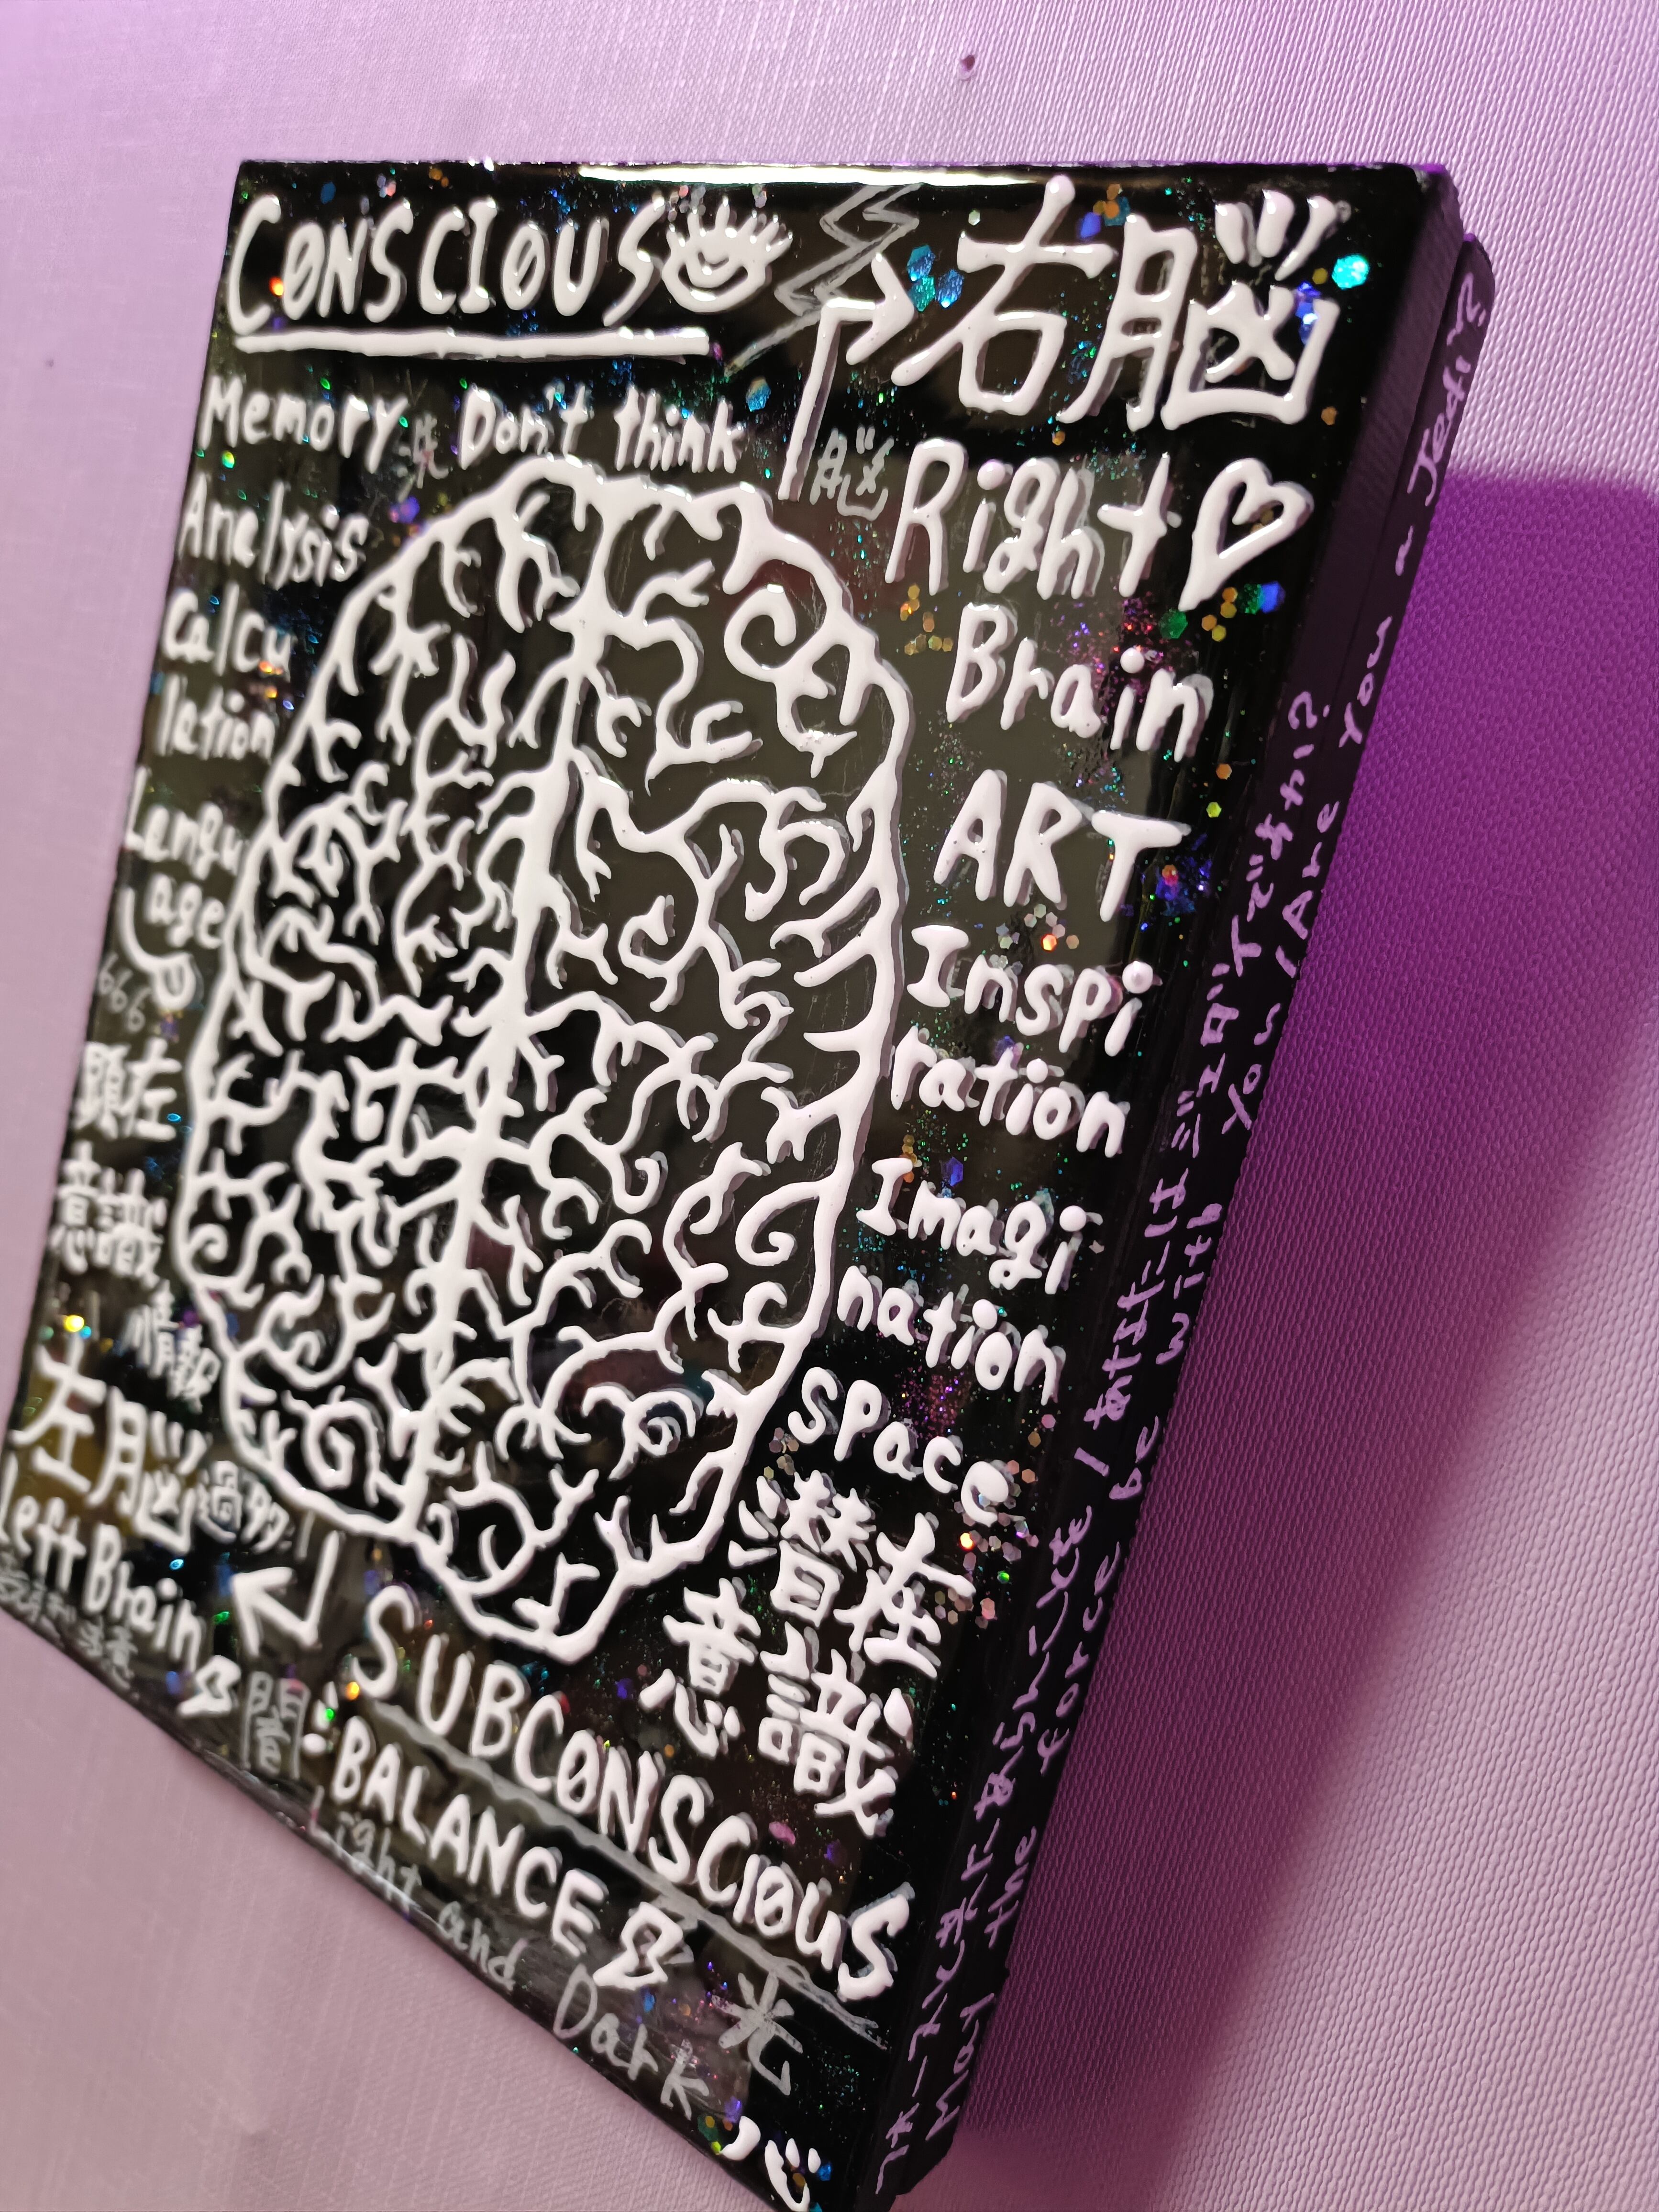 CONSCIOUS
Memory
Don't think
Analysis
Calcu
lation
Langu
age
666
顕在
意識
情報
左脳
過多
Left Brain
右脳
脳
Right
Brain
ART
Inspi
ration
Imagi
nation
space
潜在
意識
SUBCONSCIOUS
闇
BALANCE
光
Light and Dark
心
フォースとともにあらんことを / あなたはジェダイですか?
May the force be with you / Are you a Jedi?